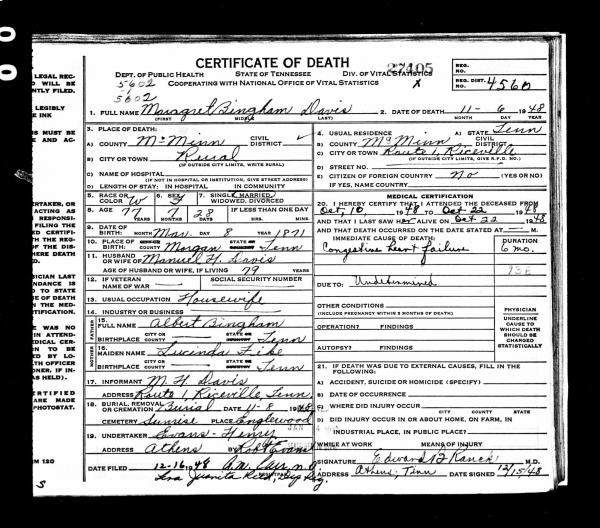 CERTIFICATE OF DEATH
27405
DEPT. OF PUBLIC HEALTH STATE OF TENNESSEE DIV. OF VITAL STATISTICS
COOPERATING WITH NATIONAL OFFICE OF VITAL STATISTICS X
REG. NO.
REG. DIST. NO. 4560
5602
5602
1. FULL NAME Margaret Bingham Davis 2. DATE OF DEATH 11- 6 1948
(FIRST) (MIDDLE) (LAST) MONTH DAY YEAR
3. PLACE OF DEATH:
A) COUNTY McMinn CIVIL DISTRICT
B) CITY OR TOWN Rural
(IF OUTSIDE CITY LIMITS, WRITE RURAL)
C) NAME OF HOSPITAL
(IF NOT IN HOSPITAL OR INSTITUTION, GIVE STREET ADDRESS)
D) LENGTH OF STAY: IN HOSPITAL IN COMMUNITY
4. USUAL RESIDENCE A) STATE Tenn
B) COUNTY McMinn CIVIL DISTRICT
C) CITY OR TOWN Route 1, Riceville
(IF OUTSIDE CITY LIMITS, GIVE R.F.D. NO.)
D) STREET NO.
E) CITIZEN OF FOREIGN COUNTRY No (YES OR NO)
IF YES, NAME COUNTRY
5. COLOR OR RACE W 6. SEX F 7. SINGLE, MARRIED, WIDOWED, DIVORCED
8. AGE 77 7 28 IF LESS THAN ONE DAY
YEARS MONTHS DAYS HRS. MINS.
9. DATE OF BIRTH: Mar. 8 1871
MONTH DAY YEAR
10. PLACE OF BIRTH Morgan Tenn
11. HUSBAND OR WIFE OF Manuel H. Davis
AGE OF HUSBAND OR WIFE, IF LIVING 79 YEARS
12. IF VETERAN NAME OF WAR SOCIAL SECURITY NUMBER
13. USUAL OCCUPATION Housewife
14. INDUSTRY OR BUSINESS
FATHER
15. FULL NAME Albert Bingham
BIRTHPLACE CITY OR COUNTY STATE OR COUNTRY Tenn
MOTHER
16. MAIDEN NAME Lucinda Pike
BIRTHPLACE CITY OR COUNTY Tenn
17. INFORMANT M. H. Davis
ADDRESS Route 1, Riceville, Tenn
18. BURIAL, REMOVAL OR CREMATION Burial DATE 11-8 1948
CEMETERY Sunrise PLACE Englewood
19. UNDERTAKER Evans-Henry
ADDRESS Athens BY Robt Evans
DATE FILED 12-16, 1948
MEDICAL CERTIFICATION
20. I HEREBY CERTIFY THAT I ATTENDED THE DECEASED FROM
Oct, 10 1948 TO Oct-22 1948
AND THAT I LAST SAW ALIVE ON Oct 22 1948
AND THAT DEATH OCCURRED ON THE DATE STATED AT — M.
IMMEDIATE CAUSE OF DEATH:
Congestive heart failure
DURATION
6 mo.
DUE TO: Undetermined
OTHER CONDITIONS
(INCLUDE PREGNANCY WITHIN 3 MONTHS OF DEATH)
OPERATION? FINDINGS
AUTOPSY? FINDINGS
PHYSICIAN
UNDERLINE CAUSE TO WHICH DEATH SHOULD BE CHARGED STATISTICALLY
21. IF DEATH WAS DUE TO EXTERNAL CAUSES, FILL IN THE FOLLOWING:
A) ACCIDENT, SUICIDE OR HOMICIDE (SPECIFY)
B) DATE OF OCCURRENCE
C) WHERE DID INJURY OCCUR
CITY COUNTY STATE
D) DID INJURY OCCUR IN OR ABOUT HOME, ON FARM, IN
INDUSTRIAL PLACE, IN PUBLIC PLACE?
WHILE AT WORK MEANS OF INJURY
SIGNATURE M.D.
ADDRESS Athens, Tenn DATE SIGNED 12/15/48